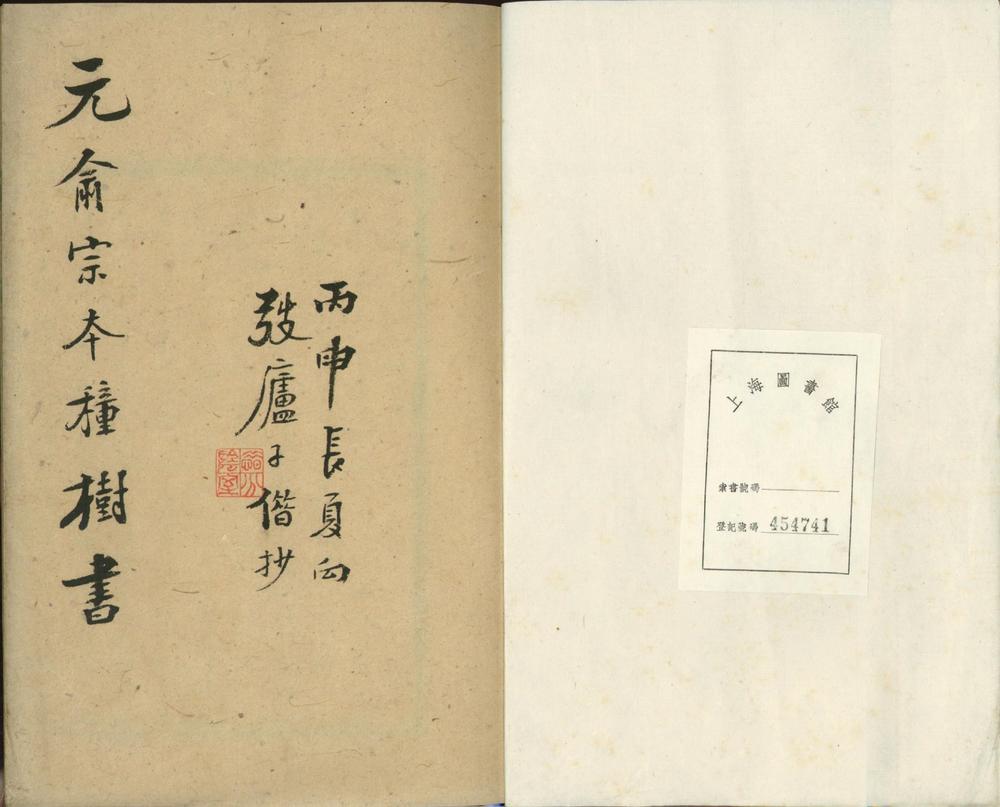 上海圖書館
索書號碼
登記號碼 454741
丙申長夏向
弢廬子偕抄
元俞宗本種樹書